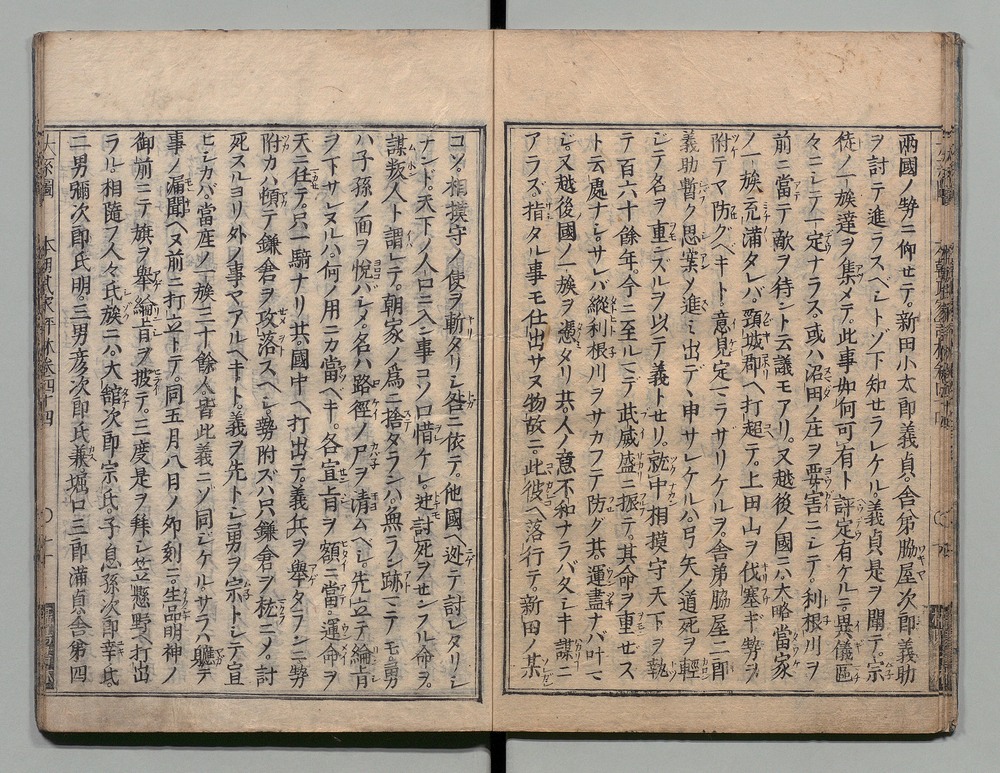 両國ノ勢ニ仰セテ。新田小太郎義貞。舎弟脇屋次郎義助
ヲ討テ進ラスベシトゾ下知セラレケル。義貞是ヲ聞テ。宗
徒ノ一族達ヲ集メテ。此事如何可有ト評定有ケルニ。異儀區
々ニシテ一定ナラス。或ハ沼田ノ庄ヲ要害ニシテ。利根川ヲ
前ニ當テ敵ヲ待ント云議モアリ。又越後ノ國ニハ大略當家
ノ一族充滿タレバ。頸城郡ヘ打超テ。上田山ヲ伐塞ギ勢ヲ
附テマ防グベキト。意見定ニラサリケルヲ。舎弟脇屋二郎
義助暫ク思案メ進ミ出デヽ申サレケルハ。弓矢ノ道死ヲ輕
シテ名ヲ重ズルヲ以テ義トセリ。就中相摸守天下ヲ執
テ百六十餘年。今ニ至ルニデ武威盛ニ振テ。其命ヲ重セス
ト云處ナシ。サレバ縱利根川ヲサカフテ防グ共運盡ナバ叶ニ
ジ。又越後國ノ一族ヲ憑タリ共。人ノ意不和ナラバ久シキ謀ニ
アラズ。指タル事モ仕出サヌ物故ニ。此彼ヘ落行テ。新田ノ某
コソ。相摸守ノ使ヲ斬タリシ咎ニ依テ。他國ヘ迯テ討レタリシ
ナンド。天下ノ人口ニ入ン事コソ口惜ケレ。迚討死ヲセンスル命ヲ。
謀叛人ト謂レテ。朝家ノ爲ニ捨タランハ。無ラン跡ニテモ勇
ハ子孫ノ面ヲ悅バシメ。名ハ路徑ノ尸ヲ清ムベシ。先立テ綸旨
ヲ下サレヌルハ。何ノ用ニカ當ベキ。各宣旨ヲ額ニ當。運命ヲ
天ニ任テ。只一騎ナリ共。國中ヘ打出テ。義兵ヲ舉タランニ勢
附カハ頓テ鎌倉ヲ攻落スヘシ。勢附ズハ只鎌倉ヲ枕ニノ。討
死スルヨリ外ノ事マアルヘキト。義ヲ先トシ勇ヲ宗トシテ宣
ヒシカバ。當座ノ一族三十餘人。皆此義ニゾ同ジケル。サラハ軈テ
事ノ漏聞ヘヌ前ニ打立トテ。同五月八月ノ卯刻ニ。生品明神ノ
御前ニテ旗ヲ舉綸旨ヲ披テ。三度是ヲ拜シ。笠懸野ヘ打出
ラル。相隨フ人々氏族ニハ。大舘次郎宗氏。子息孫次郎幸氏。
二男彌次郎氏明。三男彦次郎氏兼。堀口三郎滿貞。舎弟四